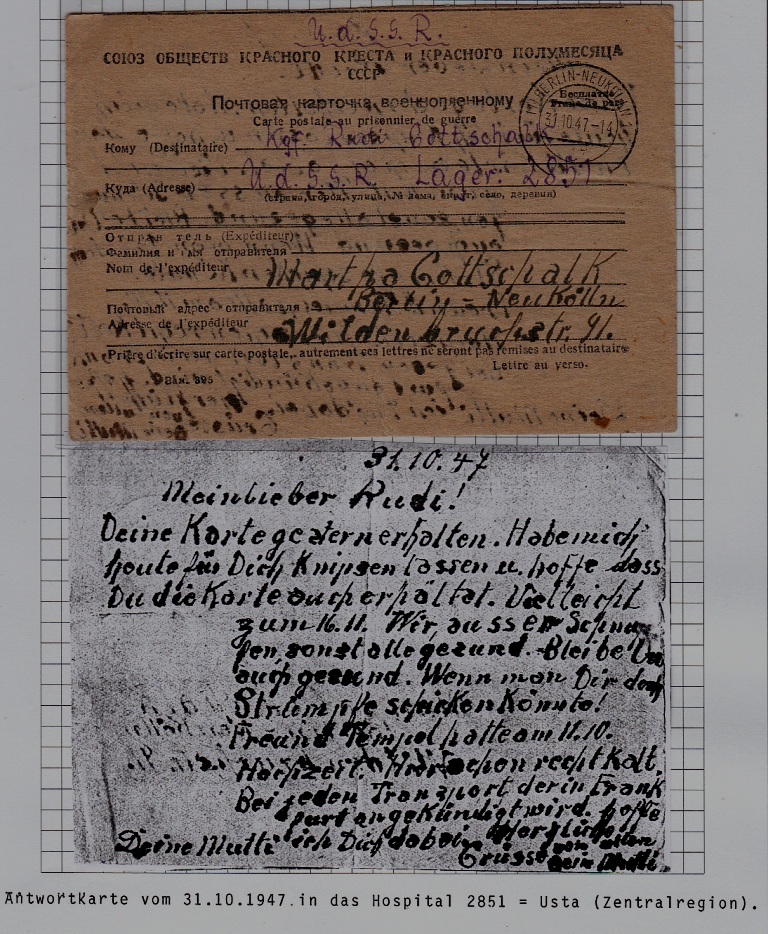 U.d.S.S.R.
СОЮЗ ОБЩЕСТВ КРАСНОГО КРЕСТА и КРАСНОГО ПОЛУМЕСЯЦА
СССР
BERLIN-NEUKÖLLN
31.10.47.-14
Бесплатно
Franc de port
Почтовая карточка военнопленному
Carte postale au prisonnier de guerre
Кому (Destinataire) Kgf. Rudi Gottschalk
Куда (Adresse) U.d.S.S.R. Lager: 2851
(страна, город, улица, № дома, округ, село, деревня)
Отправ тель (Expéditeur)
Фамилия и имя отправителя
Nom de l'expéditeur Martha Gottschalk
Почтовый адрес отправителя Berlin = Neukölln
Adresse de l'expéditeur Wildenbruchstr. 91.
Prière d'écrire sur carte postale, autrement ces lettres ne seront pas remises au destinataire
Lettre au verso.
Зак. 895
31.10.47
Mein lieber Rudi!
Deine Karte gestern erhalten. Habe mich
heute für Dich Knipsen lassen u. hoffe dass
Du die Karte auch erhältst. Vielleicht
zum 16.11. Wir, ausser Schnu-
fen, sonst alle gesund. Bleibe Du
auch gesund. Wenn man Dir doch
Strümpfe schicken Könnte!
Freund Tempel hatte am 11.10.
Hochzeit. Hier schon recht Kalt.
Bei jeden Transport der in Frank
furt angekündigt wird, hoffe
ich Dich dabei. Herzliche
Grüsse von allen
Deine Mutti
AntwortKarte vom 31.10.1947 in das Hospital 2851 = Usta (Zentralregion).